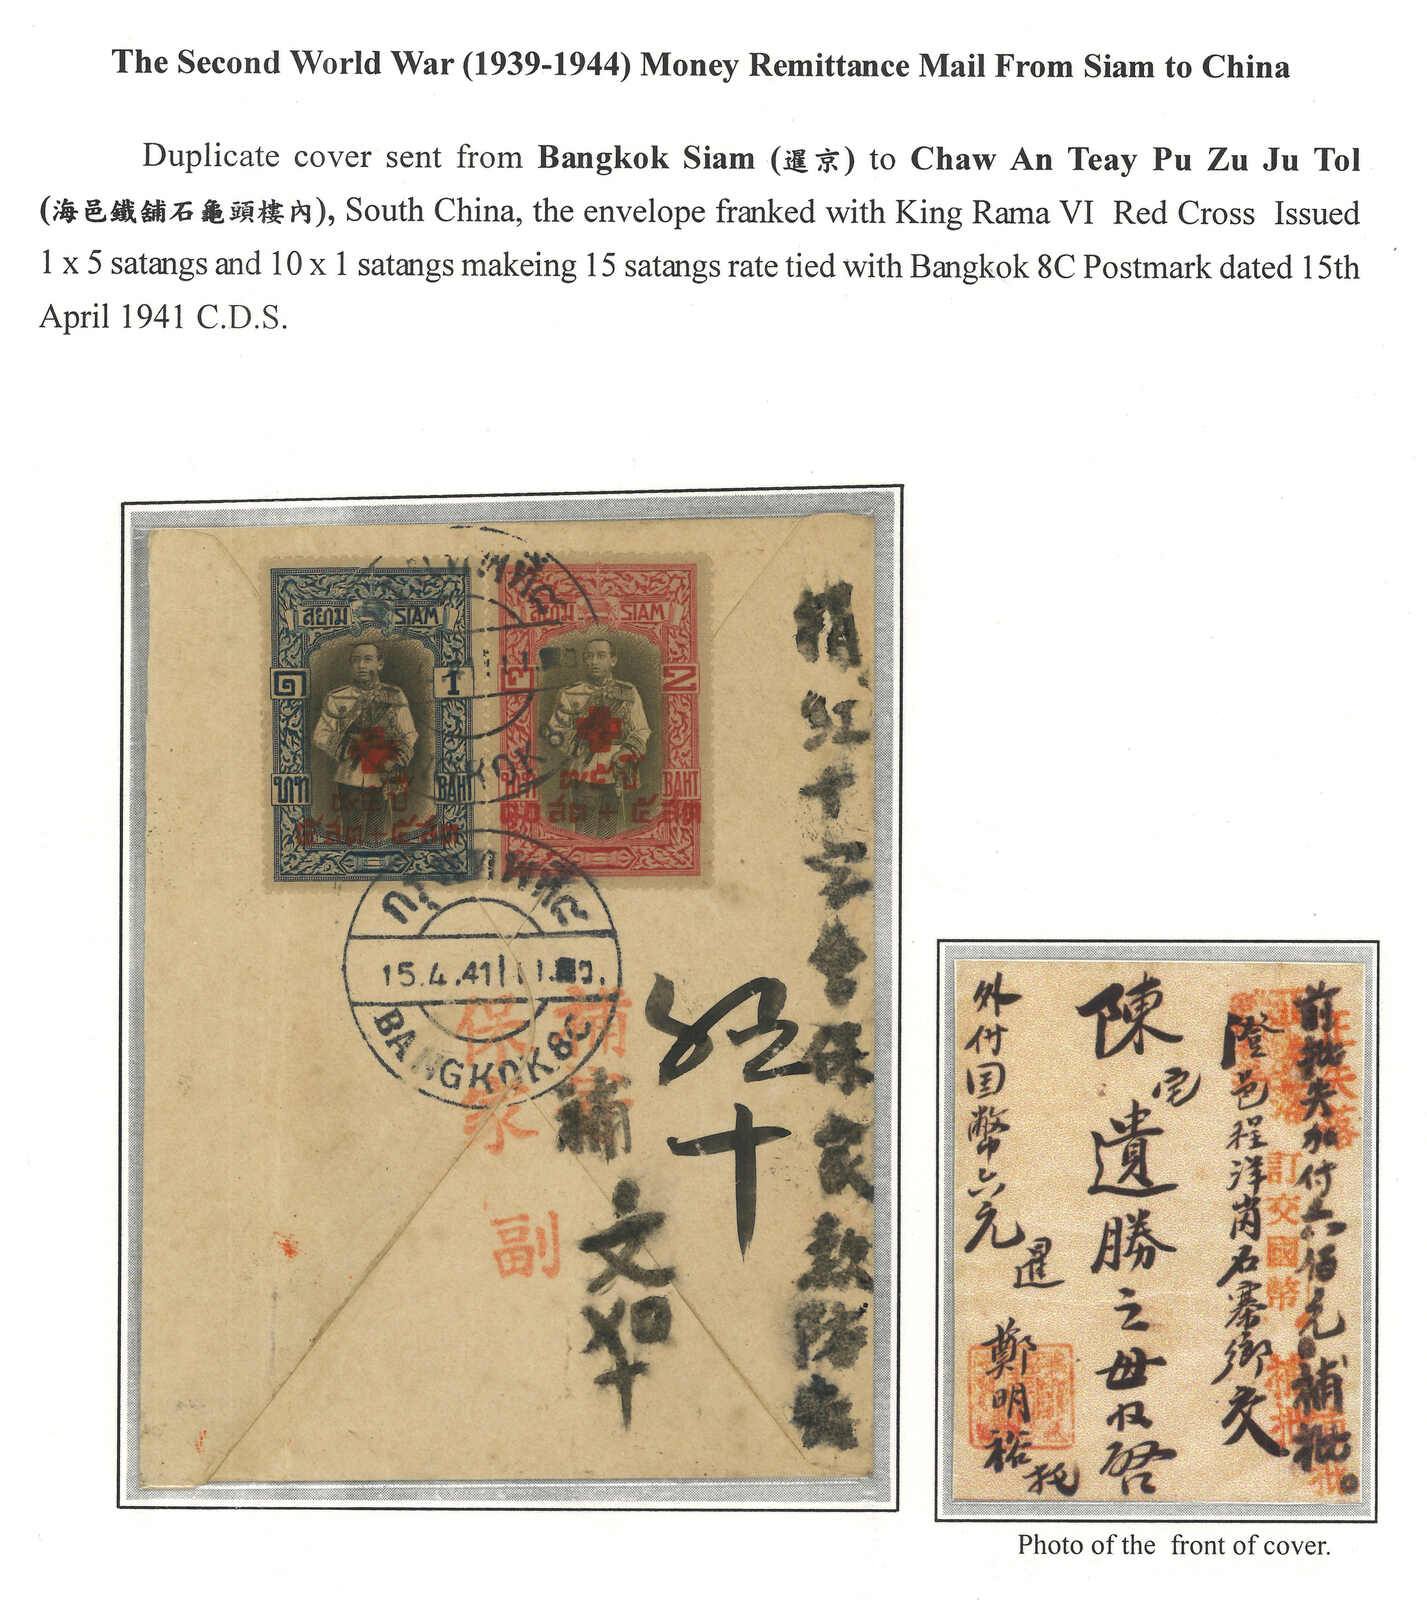 The Second World War (1939-1944) Money Remittance Mail From Siam to China
Duplicate cover sent from Bangkok Siam (暹京) to Chaw An Teay Pu Zu Ju Tol
(海邑鐵舖石龜頭樓內), South China, the envelope franked with King Rama VI Red Cross Issued
1 x 5 satangs and 10 x 1 satangs makeing 15 satangs rate tied with Bangkok 8C Postmark dated 15th
April 1941 C.D.S.
สยาม SIAM
๑ 1
บาท BAHT
๗๕ปี
๕สต+๕สต
สยาม SIAM
๒ 2
บาท BAHT
๗๕ปี
๑๐สต+๕สต
กรุงเทพฯ ๘
15.4.41
BANGKOK 8C
BANGKOK 8C
紅十字會保家
十
保家
副
文
前批失加付六佰元補批。
訂交國幣
澄邑程洋崗石寨鄉交
陳宅遺勝之母收啓
外付国幣六元
暹鄭明裕托
Photo of the front of cover.